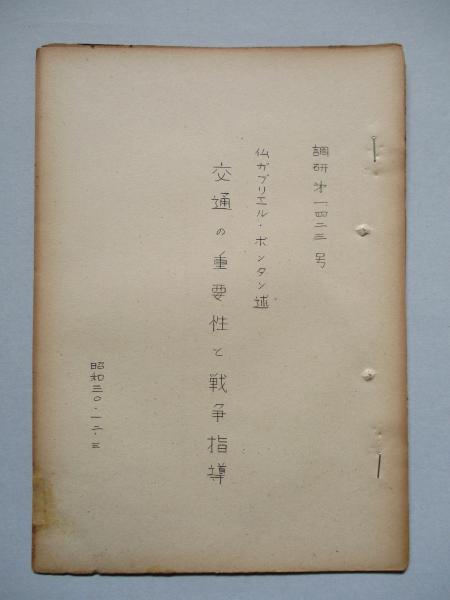 調研才一四二三号
仏ガブリエル・ボンタン述
交通の重要性と戦争指導
昭和三〇・一二・三